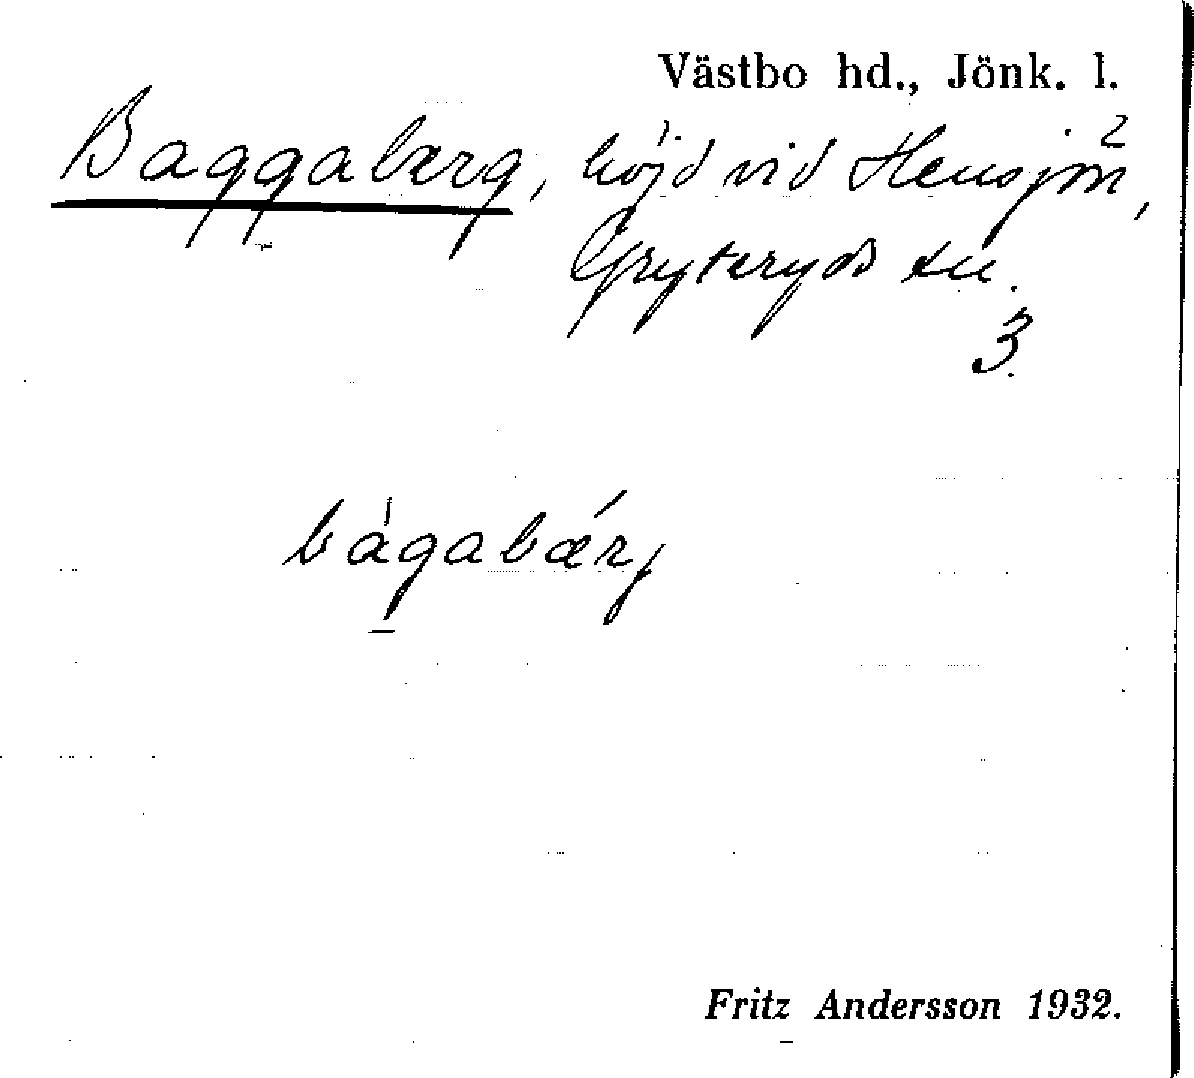 Västbo hd., Jönk. l.
Baggaberg, höjd vid Hensjön,
Gryteryds sn.
3
bàgabǽrj
Fritz Andersson 1932.